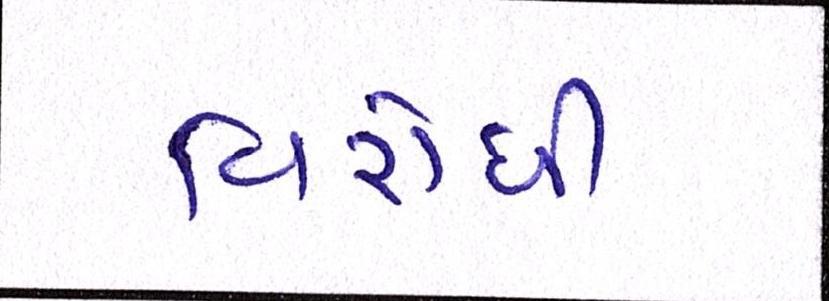 વિરોધી